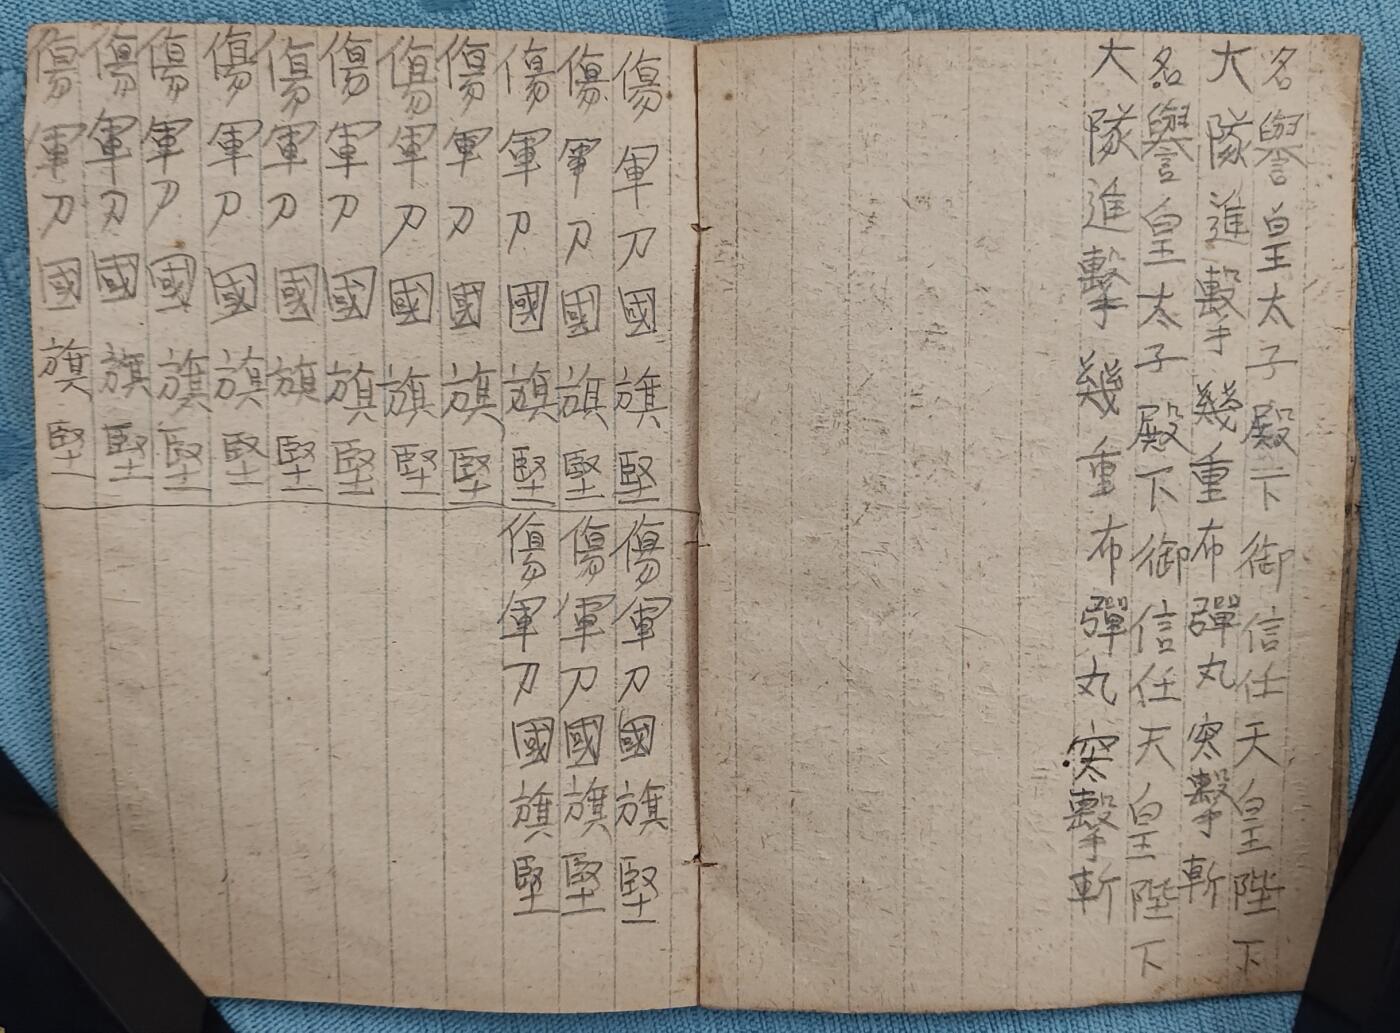 名譽皇太子殿下御信任天皇陛下
大隊進擊幾重布彈丸突擊斬
名譽皇太子殿下御信任天皇陛下
大隊進擊幾重布彈丸突擊斬
傷軍刀國旗堅
傷軍刀國旗堅
傷軍刀國旗堅
傷軍刀國旗堅
傷軍刀國旗堅
傷軍刀國旗堅
傷軍刀國旗堅
傷軍刀國旗堅
傷軍刀國旗堅
傷軍刀國旗堅
傷軍刀國旗堅
傷軍刀國旗堅
傷軍刀國旗堅
傷軍刀國旗堅